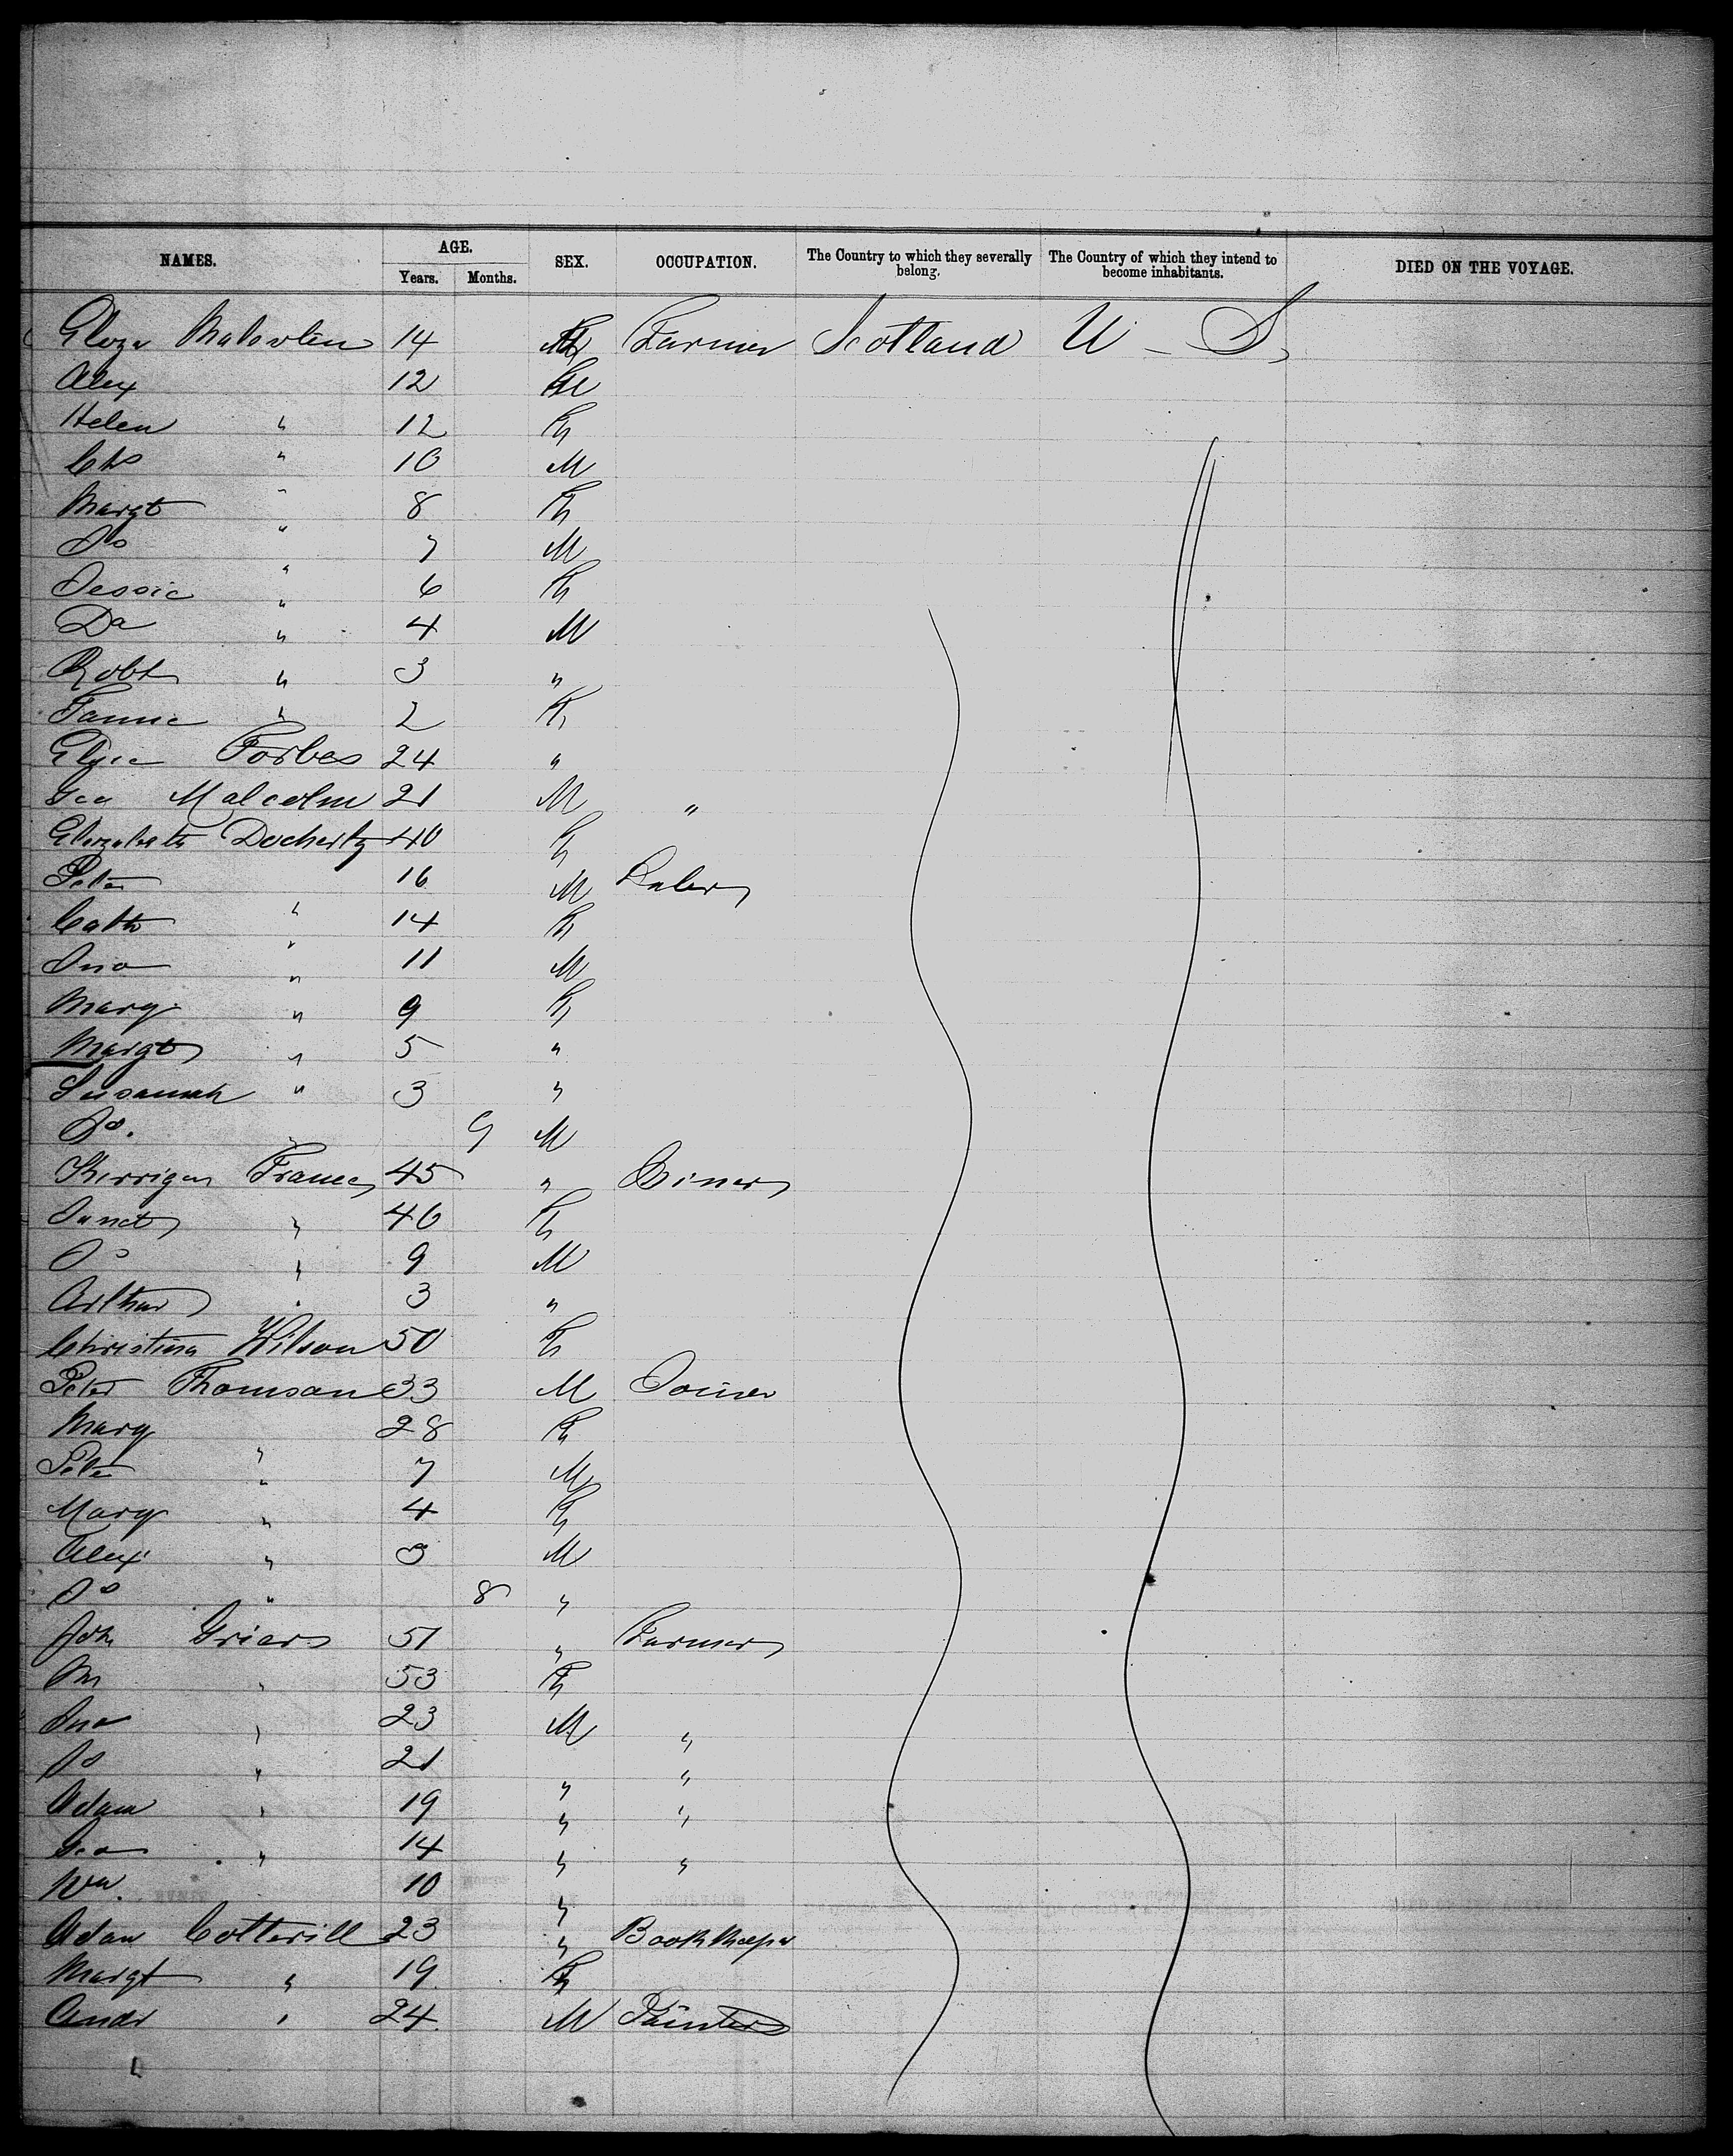 NAMES. AGE. SEX. OCCUPATION. The Country to which they severally belong. The Country of which they intend to become inhabitants. DIED ON THE VOYAGE.
Years. Months.
14 Farmer Scotland U - S
Alex 12 M
Helen " 12 F
Chs " 10 M
Margt " 8 F
Js " 7 M
Jessie " 6 F
Da " 4 M
Robt " 3 "
Fannie " 2 F
Elsie Forbes 24 "
Geo Malcolm 21 M "
Elizabeth Docherty 40 F
Peter 16 M Labor
Cath " 14 F
Jno " 11 M
Mary " 9 F
Margt " 5 "
Susannah " 3 "
Js. " 9 M
Kerrigan Frances 45 "
Janet " 40 F
Js " 9 M
Arthur " 3 "
Christina Wilson 50 F
Peter Thomson 33 M Joiner
Mary " 28 F
Peter " 7 M
Mary " 4 F
Alex " 3 M
Js " 8 "
John Grier 51 " Farmer
M " 53 F
Jno " 23 M "
Js " 21 " "
Adam " 19 " "
Geo " 14 " "
Wm. 10 "
Adam Cotterill 23 " Bookkeeper
Margt " 19 F
Andr " 24 M Painter